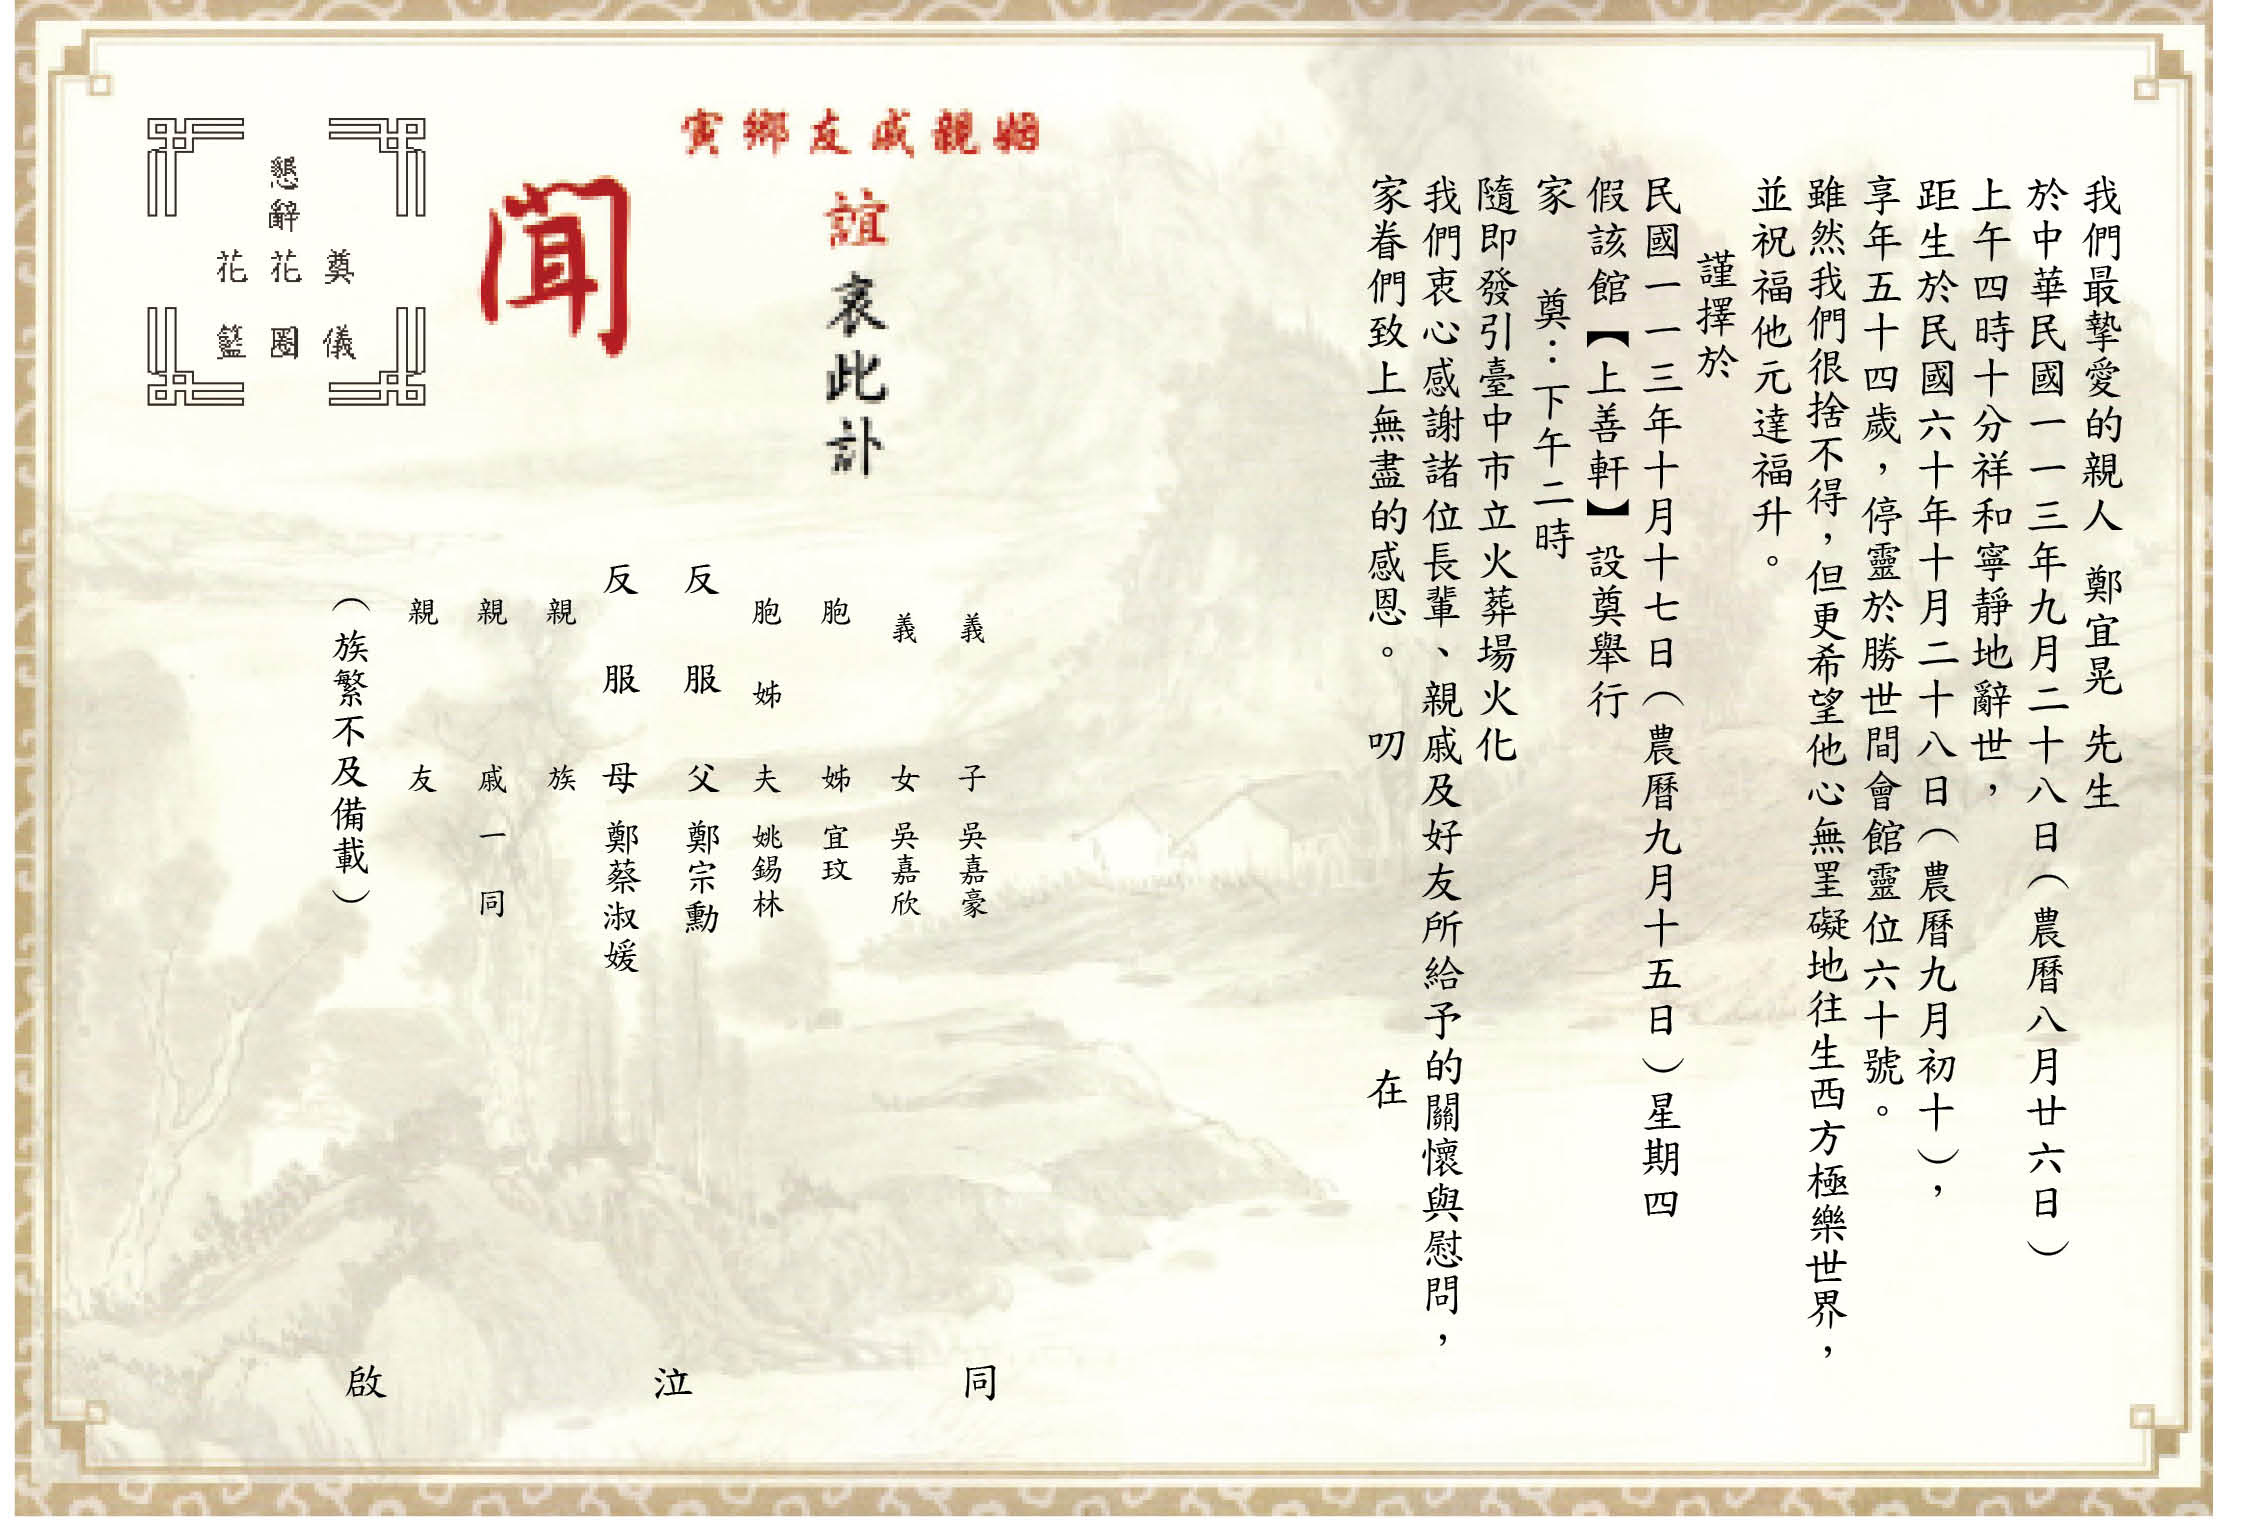 我們最摯愛的親人 鄭宜晃 先生
於中華民國一一三年九月二十八日（農曆八月廿六日）
上午四時十分祥和寧靜地辭世，
距生於民國六十年十月二十八日（農曆九月初十），
享年五十四歲，停靈於勝世間會館靈位六十號。
雖然我們很捨不得，但更希望他心無罣礙地往生西方極樂世界，
並祝福他元達福升。
謹擇於
民國一一三年十月十七日（農曆九月十五日）星期四
假該館【上善軒】設奠舉行
家 奠：下午二時
隨即發引臺中市立火葬場火化
我們衷心感謝諸位長輩、親戚及好友所給予的關懷與慰問，
家眷們致上無盡的感恩。 叨 在
姻親戚友鄉寅
誼哀此訃
聞
懇辭
奠儀
花圈
花籃
義子 吳嘉豪
義女 吳嘉欣
胞姊 宜玟
胞姊夫 姚錫林
反服父 鄭宗勳
反服母 鄭蔡淑媛
親族
親戚一同
親友
（族繁不及備載）
同泣啟